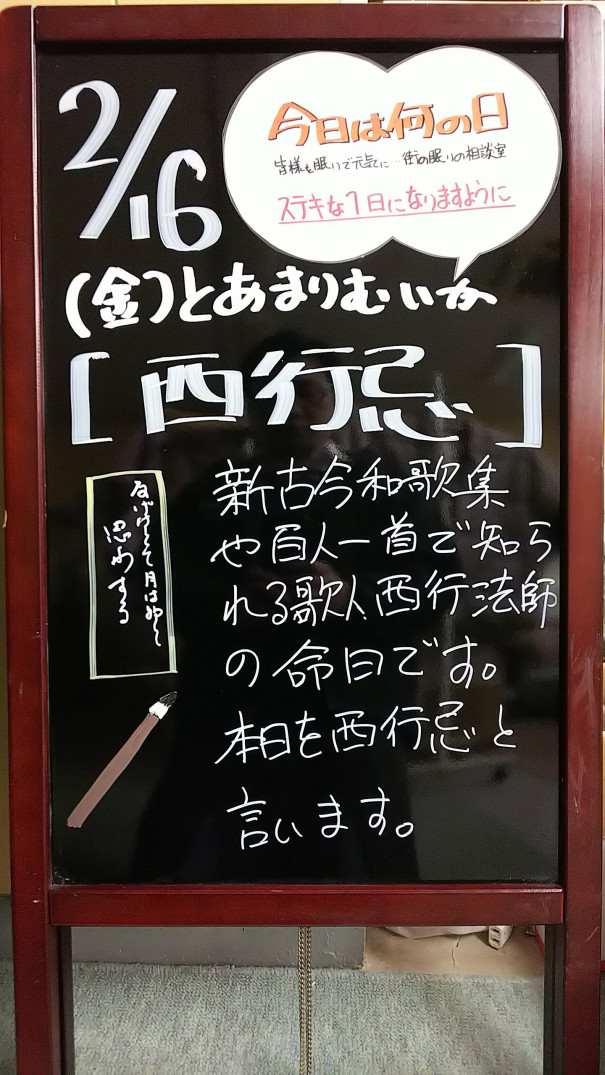 2/16
今日は何の日
皆様も眠りで元気に…街の眠りの相談室
ステキな1日になりますように
(金)とあまりむいか
[西行忌]
新古今和歌集
や百人一首で知ら
れる歌人、西行法師
の命日です。
本日を西行忌と
言います。
なげけとて月はやは
思わする